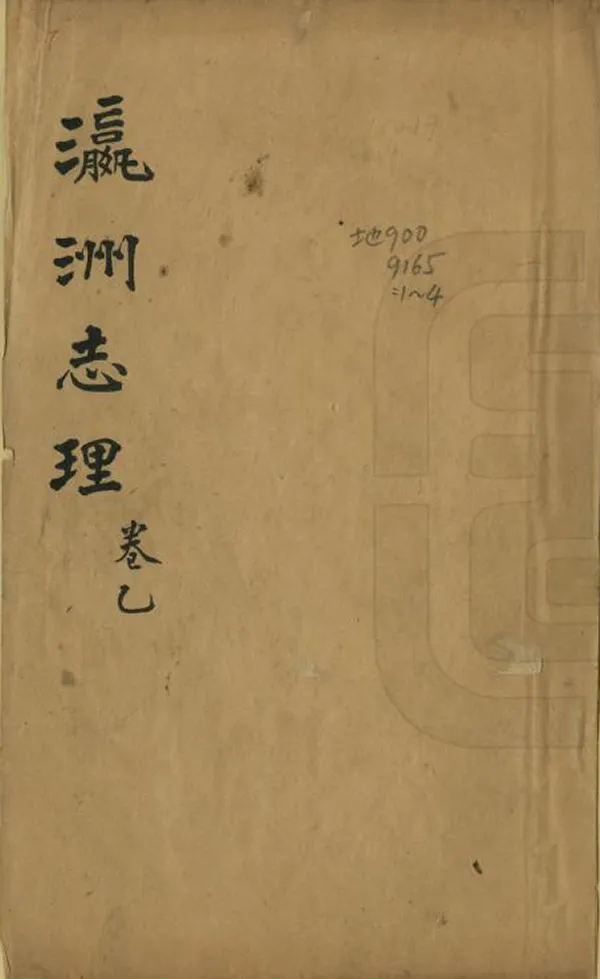 瀛洲志理
卷乙
地900
9165
:1~4